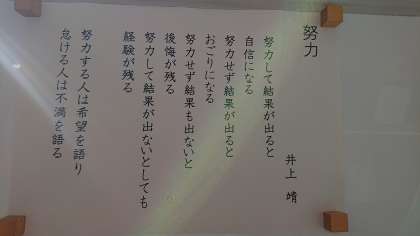 努力
井上 靖
努力して結果が出ると
自信になる
努力せず結果が出ると
おごりになる
努力せず結果も出ないと
後悔が残る
努力して結果が出ないとしても
経験が残る
努力する人は希望を語り
怠ける人は不満を語る